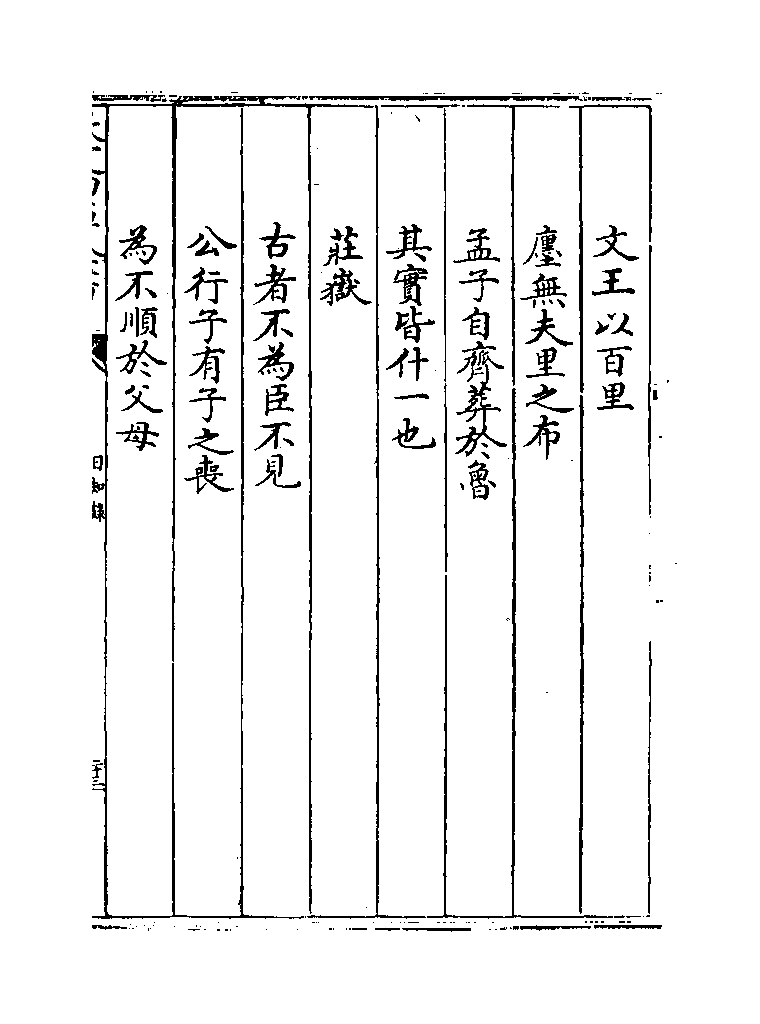 文王以百里
廛無夫里之布
孟子自齊葬於魯
其實皆什一也
莊嶽
古者不為臣不見
公行子有子之喪
為不順於父母
日知錄